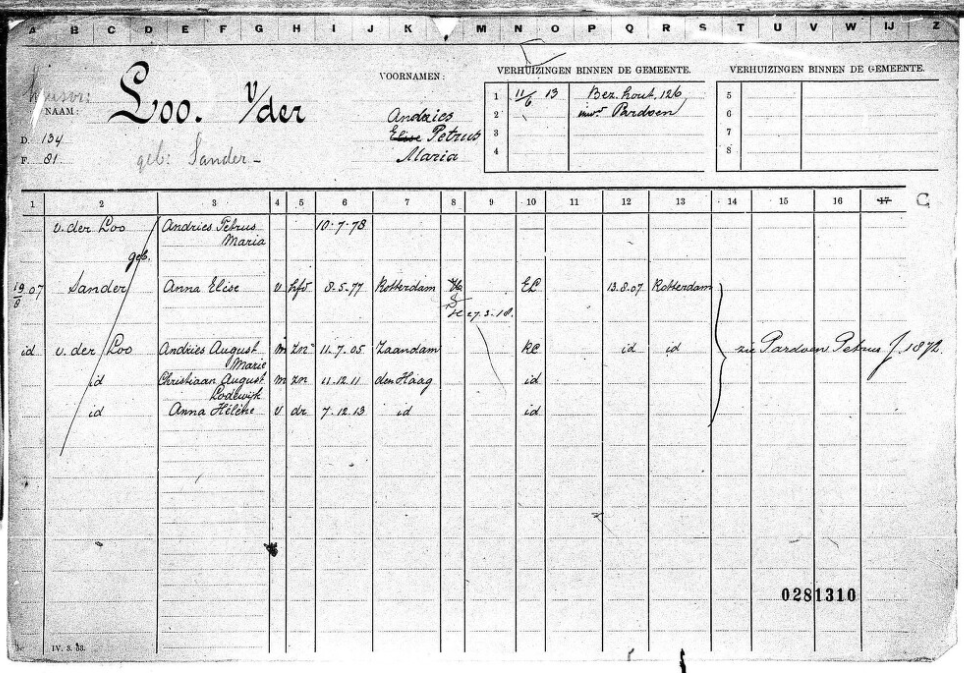 A B C D E F G H I J K L M N O P Q R S T U V W IJ Z
NAAM:
Loo. v/der
VOORNAMEN:
Andries
Elise Petrus
Maria
D. 134
F. 81
geb: Sander-
VERHUIZINGEN BINNEN DE GEMEENTE.
1 11/6 13 Bez. hout, 126
2 Pardoen
3
4
VERHUIZINGEN BINNEN DE GEMEENTE.
5
6
7
8
1 2 3 4 5 6 7 8 9 10 11 12 13 14 15 16 17 G
v. der Loo Andries Petrus 10-7-78
Maria
geb.
19/8 07 Sander Anna Elise v hfd 8-5-77 Rotterdam EL 13.8.07 Rotterdam
27.3.18.
id v. der Loo Andries August m zn 11.7.05 Zaandam RC id id zie Pardoen Petrus J. 1872.
Marie
id Christiaan August m zn 11.12.11 den Haag id
Lodewijk
id Anna Hélène v dr 7.12.13 id id
0281310